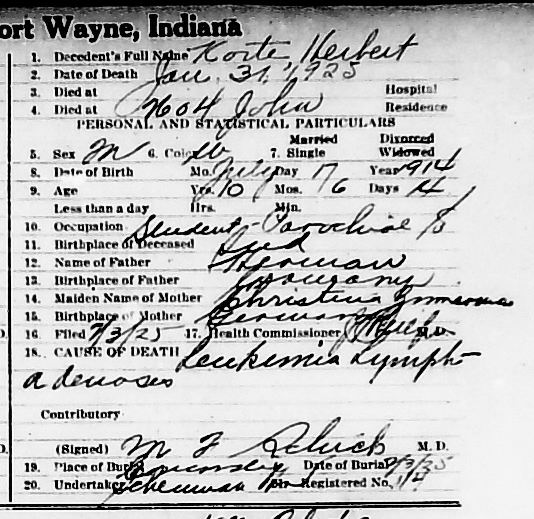 ort Wayne, Indiana
1. Decedent's Full Name Korte Herbert
2. Date of Death Jan. 31, 1925
3. Died at Hospital
4. Died at 2604 John Residence
PERSONAL AND STATISTICAL PARTICULARS
Married Divorced
5. Sex M 6. Color W 7. Single Widowed
8. Date of Birth Mo. July Day 17 Year 1914
9. Age Yrs. 10 Mos. 6 Days 14
Less than a day Hrs. Min.
10. Occupation Student - Parochial
11. Birthplace of Deceased Ind
12. Name of Father Herman
13. Birthplace of Father Germany
14. Maiden Name of Mother Christina
15. Birthplace of Mother Germany
16. Filed 2/3/25 17. Health Commissioner M. D.
18. CAUSE OF DEATH Leukemia Lymph-
adenosis
Contributory
(Signed) M F Schick M. D.
19. Place of Burial Concordia Date of Burial 2/3/25
20. Undertaker Registered No.